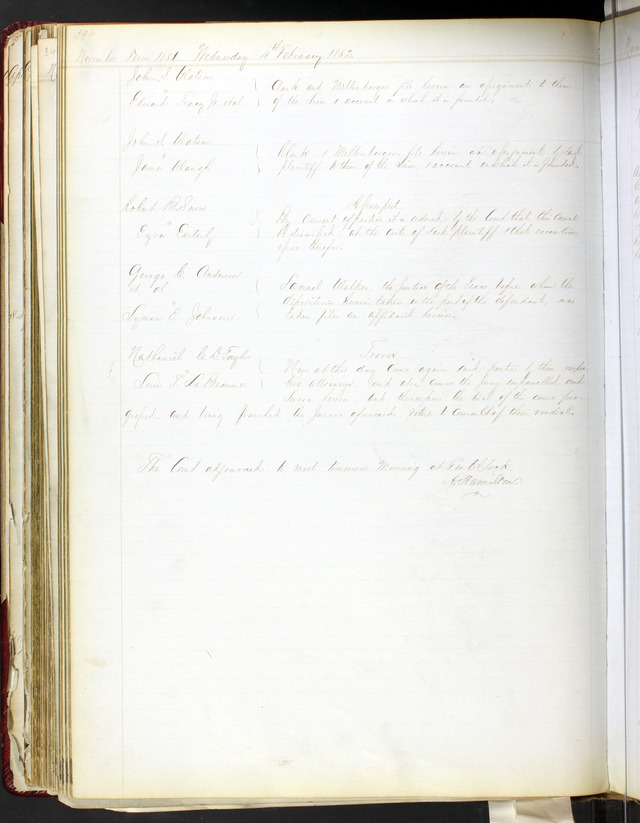 194
November Term 1851 Wednesday 4th February 1852
John L Watson
vs
Edward Tracy Jr et al
Clark and Wellenbarger file herein an assignment to them
of the lien & account on which it is founded.
John L Watson
vs
James Waugh
Clark & Wellenbarger file herein an assignment by said
plaintiff to them of the lien & account on which it is founded.
Robert
vs
Ezra
Assumpsit
By consent of parties it is ordered by the Court that this cause
be dismissed at the costs of said plaintiff & that execution
issue therefor.
George C Anderson
et al
vs
Lyman E Johnson
Samuel Walker, the justice of the Peace before whom the
depositions herein taken on the part of the defendant, was
taken files an affidavit herein.
Nathaniel C D Taylor
vs
Louis
Trover
Now at this day come again said parties by their respec
tive attorneys and also comes the jury empannelled and
sworn herein and thereupon the trial of the cause pro
gressed and being finished the jurors aforesaid retire to consider of their verdict.
The Court adjourned to meet tomorrow Morning at Ten O'Clock
A Hamilton